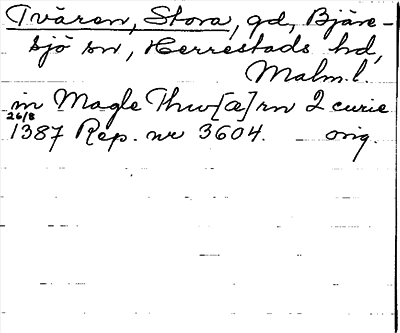 Tvären, Stora, gd, Bjäre-
sjö sn, Herrestads hd,
Malm.l.
in Magle Thw[æ]rn 2 curie
26/8
1387 Rep. nr 3604. orig.